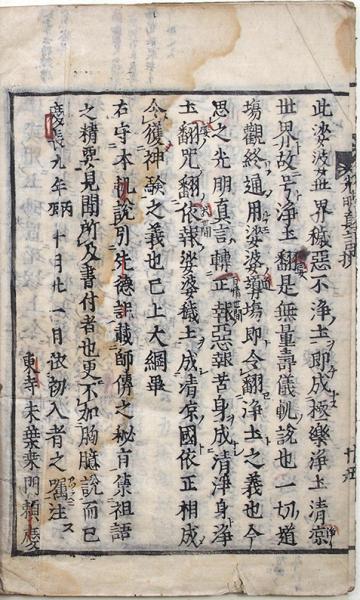 此娑婆世界穢惡不淨土即成極樂淨土清涼
世界故号淨土翻是無量壽儀軌說也一切道
塲觀終通用娑婆道塲即令翻淨土之義也今
思之先朋真言轉正報惡報苦身成清淨身淨
土翻咒翻依報娑婆穢土成清凉國依正相成
令獲神驗之義也已上大綱畢
右守本軌說引先德記蔵師傳之秘肓集祖語
之精要見聞所及書付者也更不加胸臆說而已
慶長九年丙十月廿一日依初入者之囑注ス
東寺末葉桑門頼慶